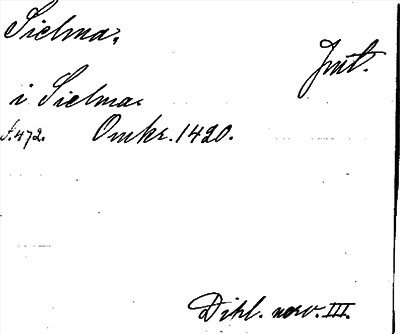 Sielma.
Jmt.
i Sielma.
s. 472. Omkr. 1420.
Dipl. norv. III.